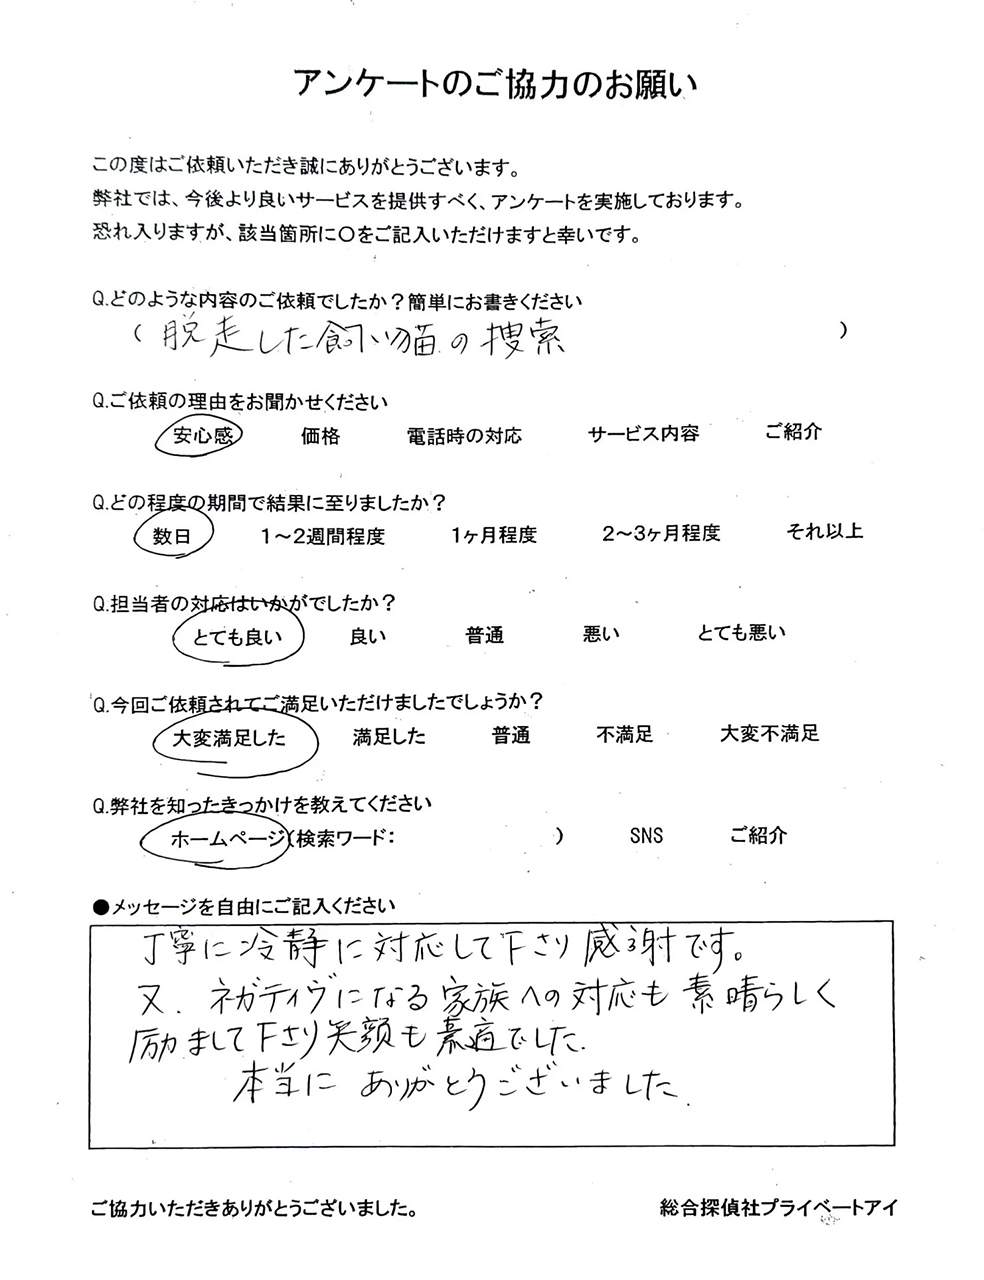 アンケートのご協力のお願い
この度はご依頼いただき誠にありがとうございます。
弊社では、今後より良いサービスを提供すべく、アンケートを実施しております。
恐れ入りますが、該当箇所に○をご記入いただけますと幸いです。
Q.どのような内容のご依頼でしたか？簡単にお書きください
（脱走した飼い猫の捜索）
Q.ご依頼の理由をお聞かせください
安心感 価格 電話時の対応 サービス内容 ご紹介
Q.どの程度の期間で結果に至りましたか？
数日 1～2週間程度 1ヶ月程度 2～3ヶ月程度 それ以上
Q.担当者の対応はいかがでしたか？
とても良い 良い 普通 悪い とても悪い
Q.今回ご依頼されてご満足いただけましたでしょうか？
大変満足した 満足した 普通 不満足 大変不満足
Q.弊社を知ったきっかけを教えてください
ホームページ（検索ワード： ） SNS ご紹介
●メッセージを自由にご記入ください
丁寧に冷静に対応して下さり感謝です。
又、ネガティヴになる家族への対応も素晴らしく
励まして下さり笑顔も素適でした.
本当に ありがとうございました.
ご協力いただきありがとうございました。 総合探偵社プライベートアイ